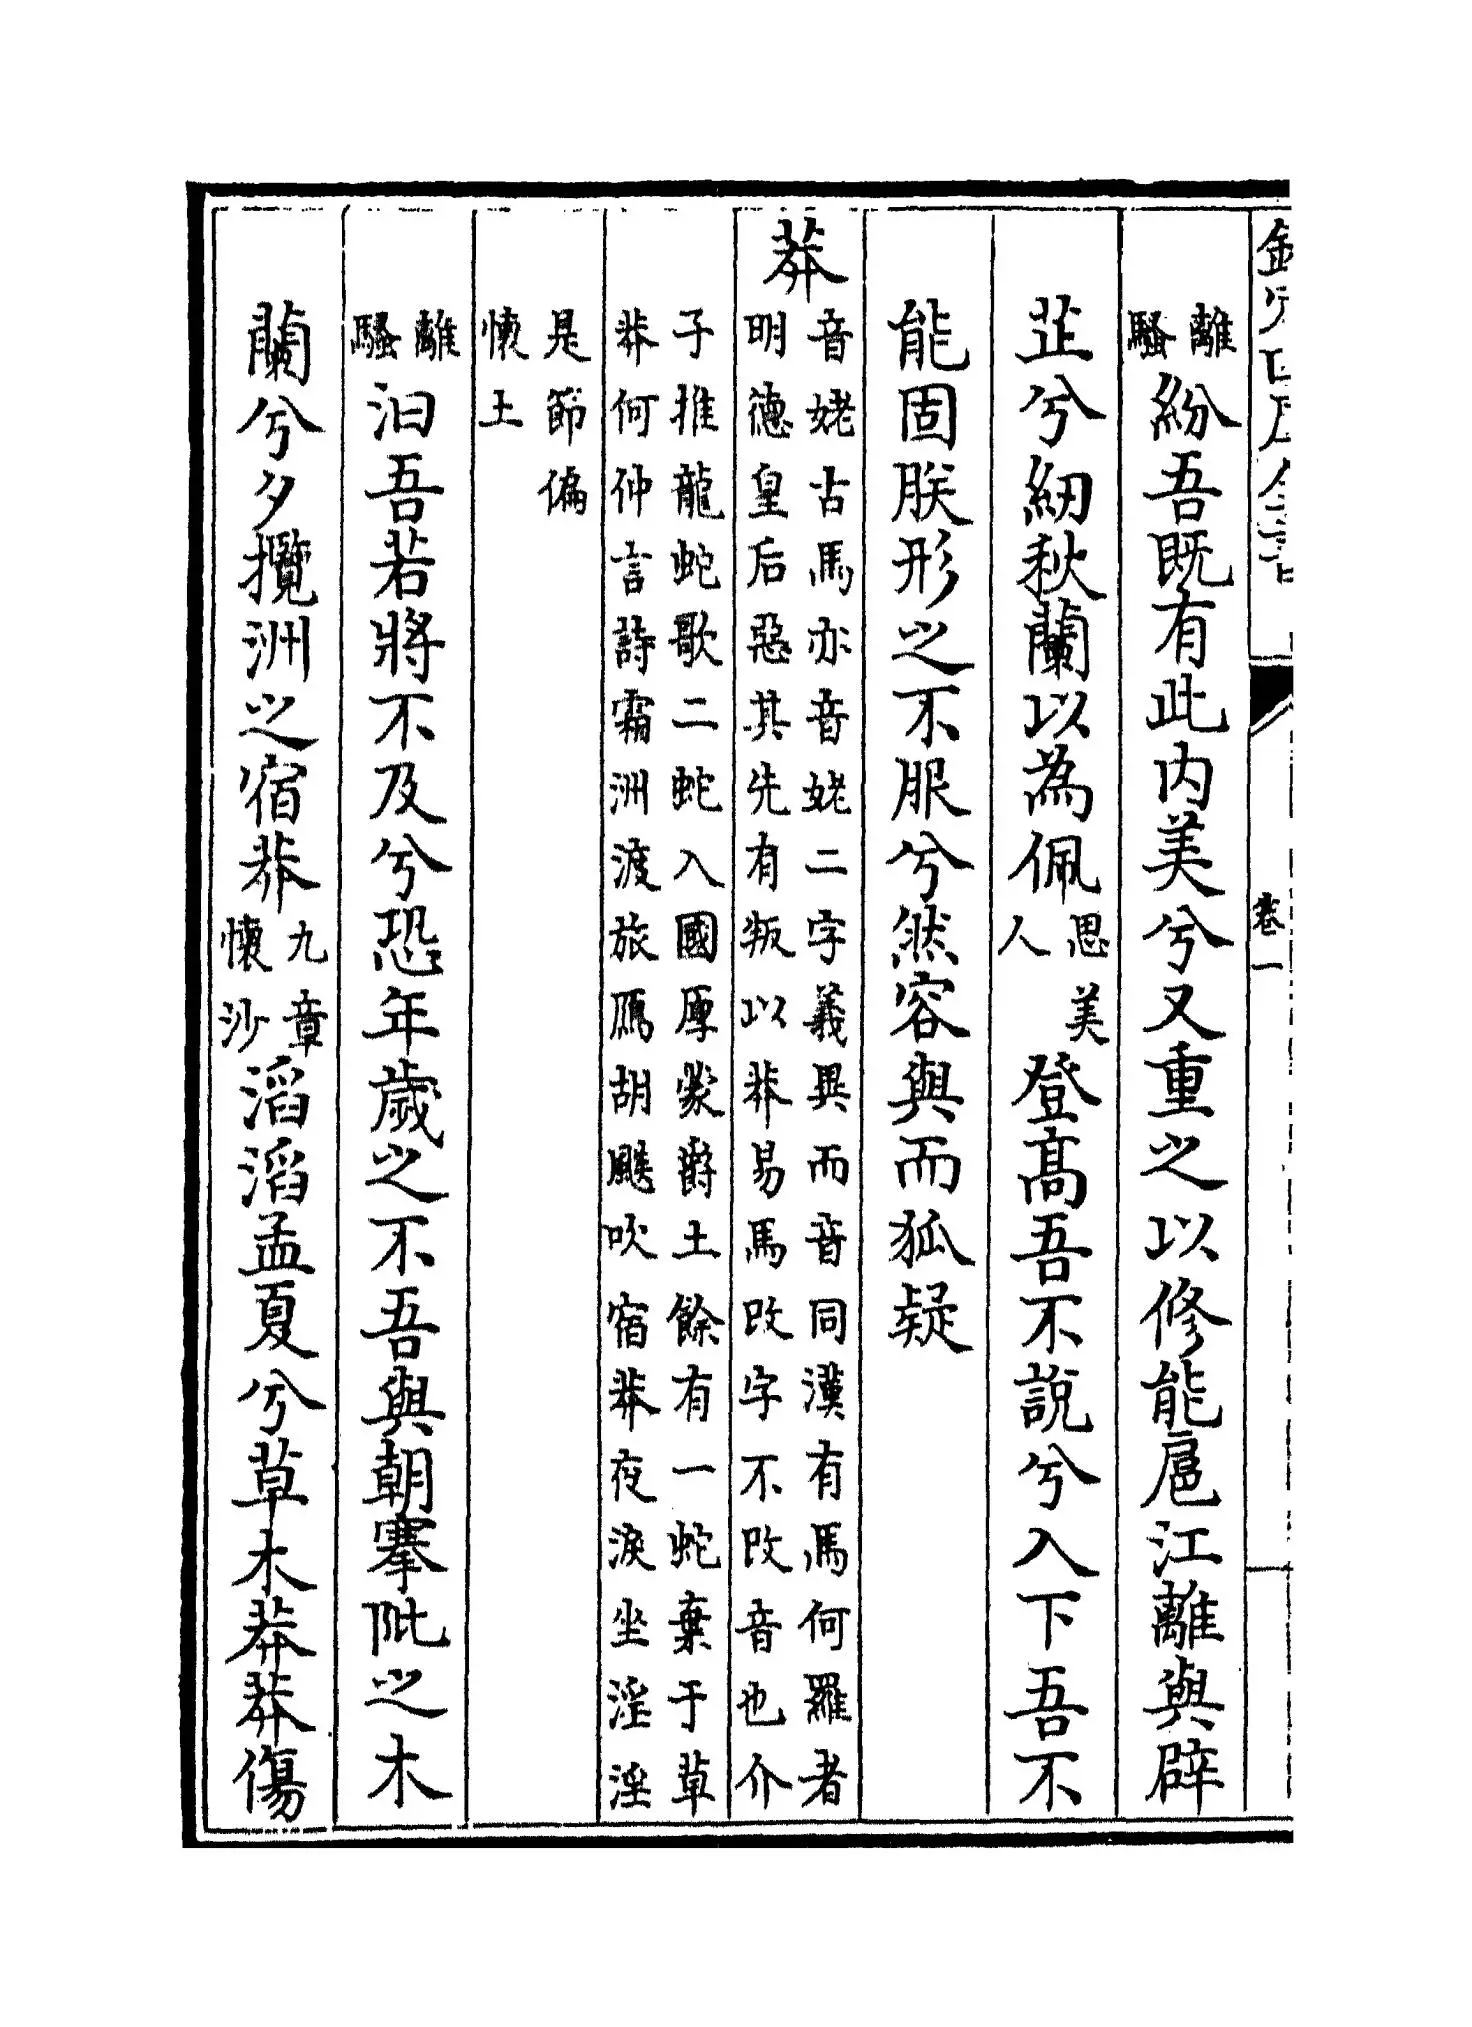 欽定四庫全書
卷一
離騷 紛吾既有此内美兮又重之以修能扈江離與辟
芷兮紉秋蘭以為佩 思美人 登髙吾不說兮入下吾不
能固朕形之不服兮然容與而狐疑
莽
音姥古馬亦音姥二字義異而音同漢有馬何羅者
明德皇后惡其先有叛以莽易馬改字不改音也介
子推龍蛇歌二蛇入國厚蒙爵土餘有一蛇棄于草
莽何仲言詩霜洲渡旅鴈胡飇吹宿莽夜淚坐淫淫
是節偏
懷土
離騷 汩吾若將不及兮恐年歲之不吾與朝搴阰之木
蘭兮夕攬洲之宿莽 九章懷沙 滔滔孟夏兮草木莽莽傷